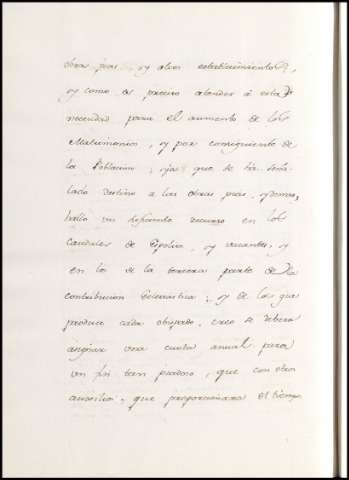 obras pias, y alos establecimientos,
y como es preciso atender á esta
necesidad para el aumento de los
Matrimonios, y por consiguiente de
la Poblacion; ya que se ha seña-
lado destino a las obras pias, y demas,
hallo un suficiente recurso en los
Caudales de Espolios, y vacantes, y
en los de la tercera parte de la
contribucion Eclesiastica, y de los que
produce cada obispado, creo se debera
asignar una cuota anual para
un fin tan piadoso, que con otros
auxilios, que proporcionara el tiempo